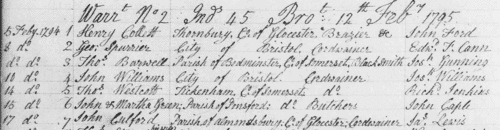 Warrt. No 2 Ind 45 Brot. 12th Feby 1795
5 Feby. 1794 1 Henry Collett Thornbury, Co. of Glocester Brazier &c John Ford
8 do. 2 Geo: Spurrier City of Bristol Cordwainer Edwd. T. Cann
do do. 3 Thos. Barwell Parish of Bedminster, C. of Somerset, Black Smith Jos: Gunning
10 do. 4 John Williams City of Bristol. Cordwainer Jos: Williams
14 do 5 Thos. Westcott Tickenham, C. of Somerset do. Richd. Jenkins
15 do 6 John & Martha Green; Parish of do. Butchers John Caple
17 do. 7 John Parish of Almondsbury; C. of Glocester: Cordwainer Jas. Lewis